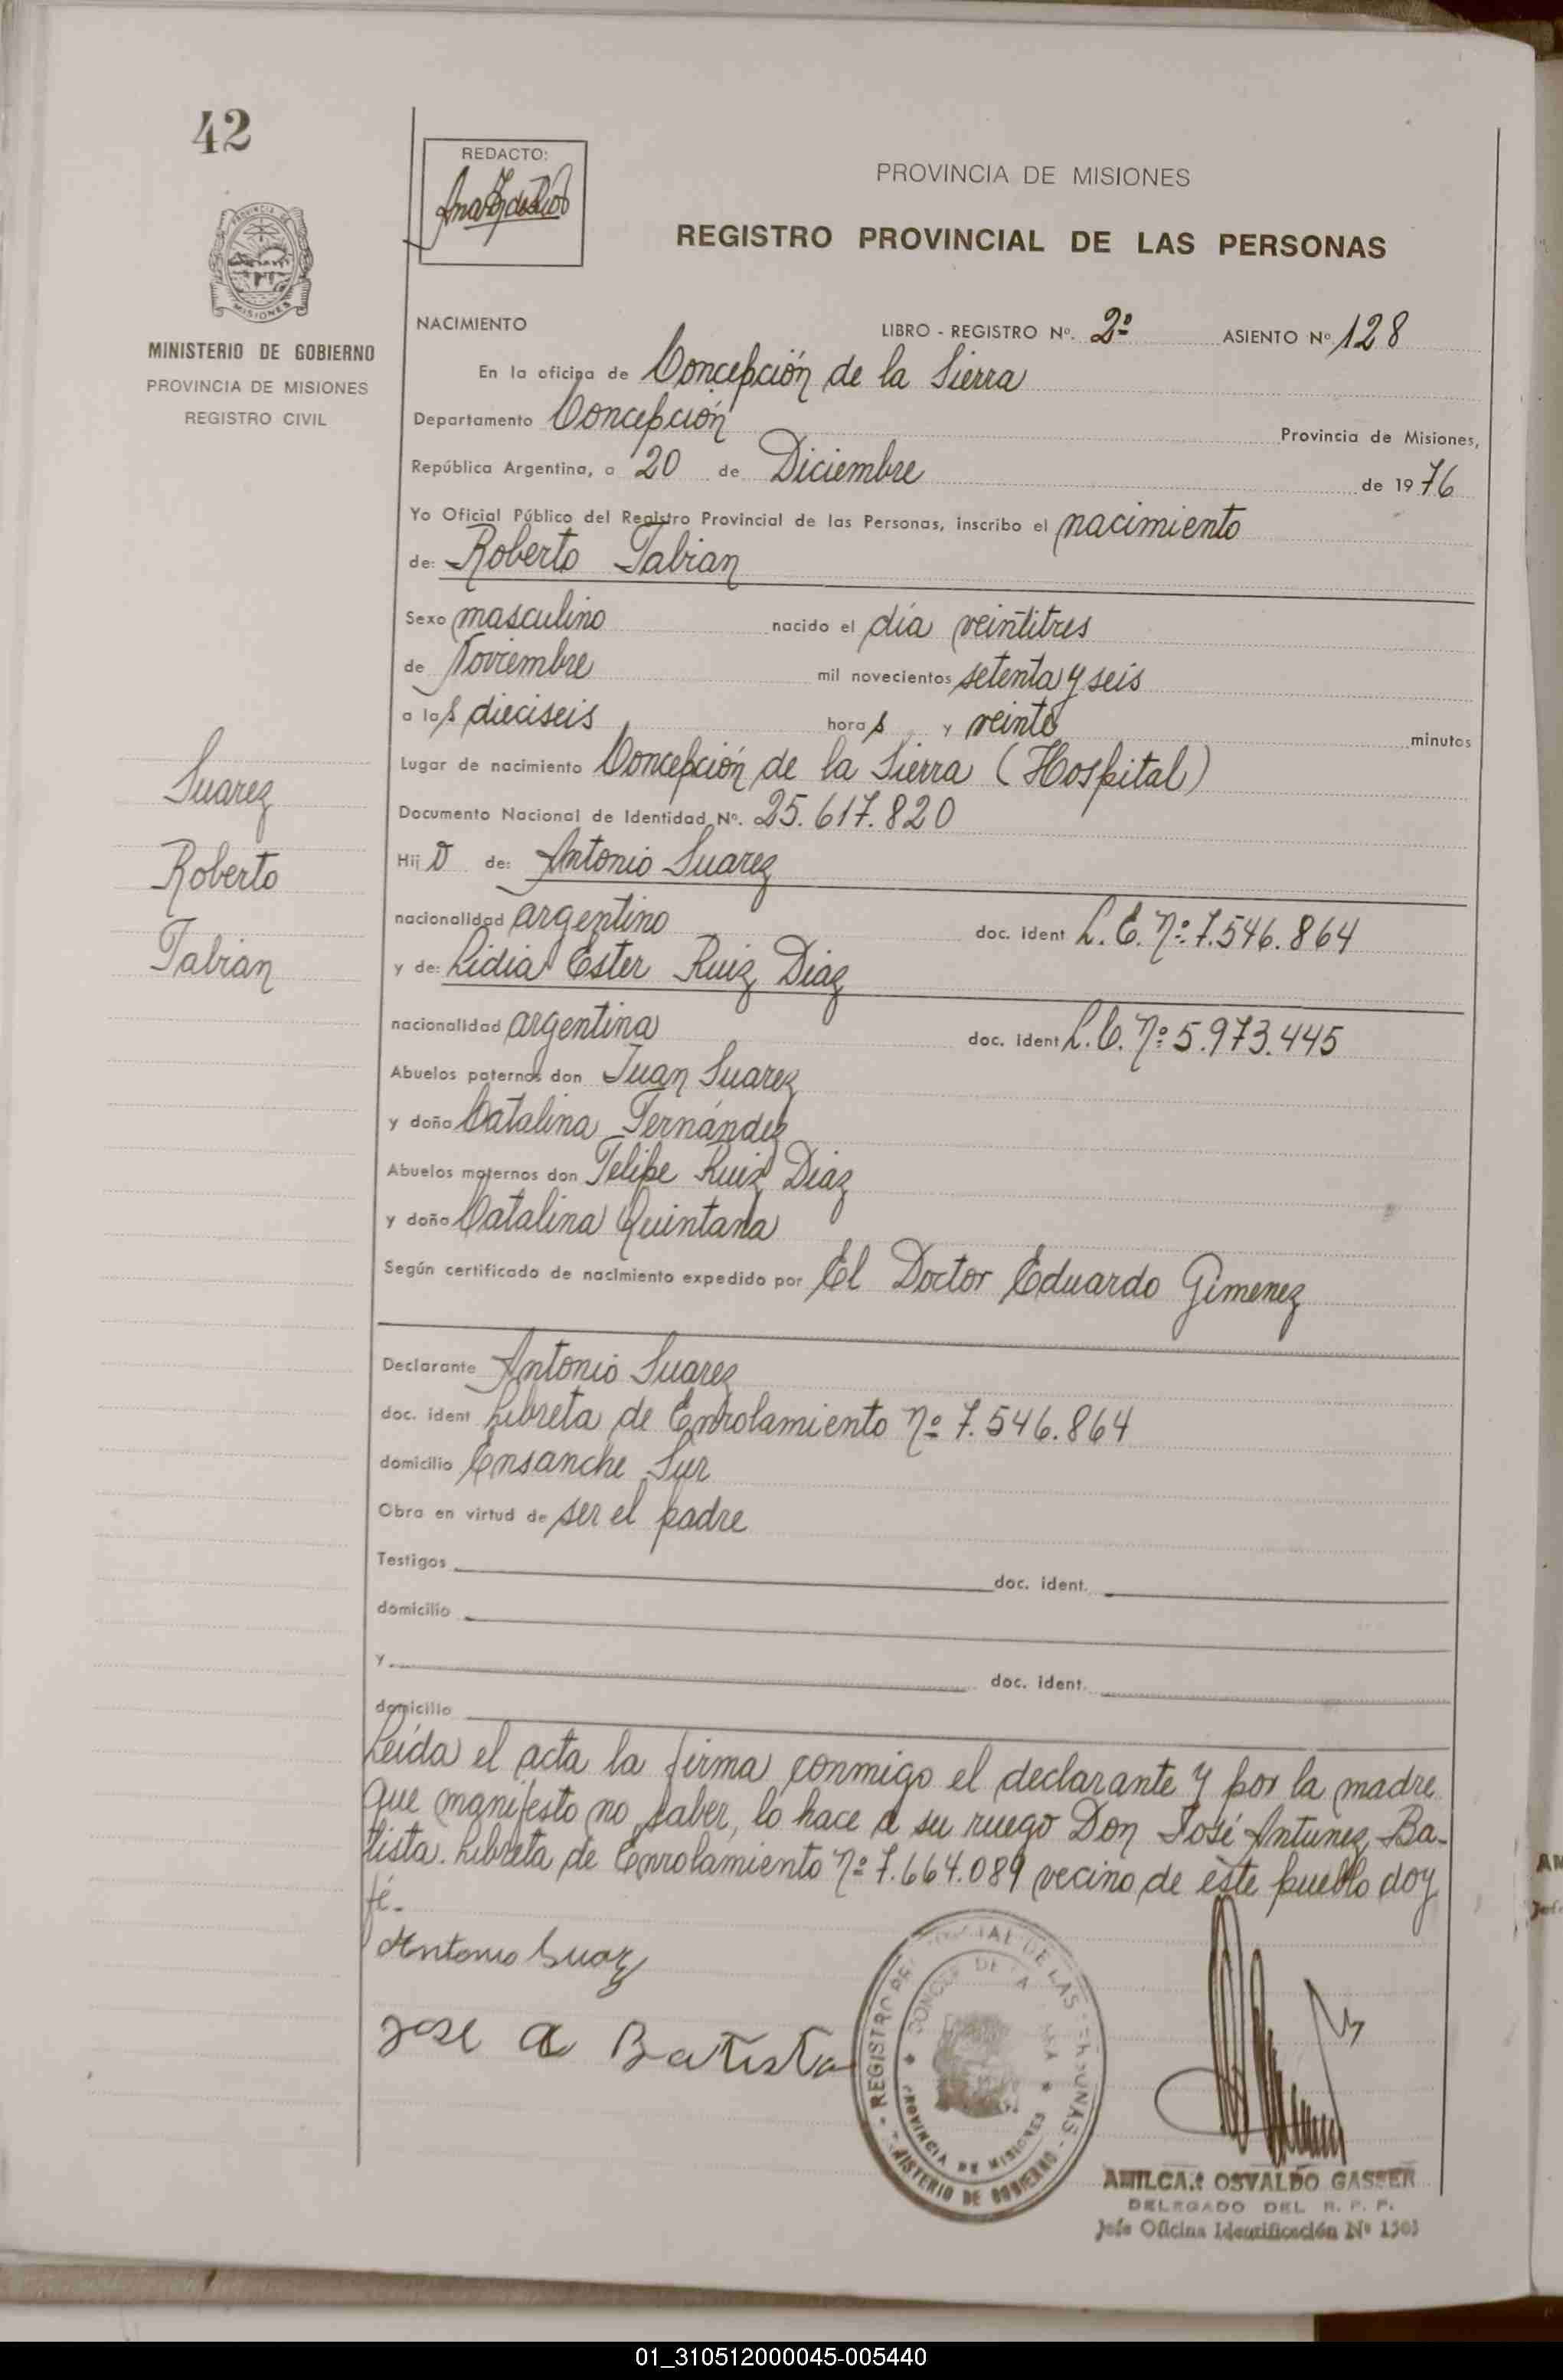 42
REDACTO:
PROVINCIA DE MISIONES
REGISTRO PROVINCIAL DE LAS PERSONAS
PROVINCIA DE
MISIONES
MINISTERIO DE GOBIERNO
PROVINCIA DE MISIONES
REGISTRO CIVIL
NACIMIENTO LIBRO - REGISTRO Nº. 2º ASIENTO Nº 128
En la oficina de Concepción de la Sierra
Departamento Concepción Provincia de Misiones,
República Argentina, a 20 de Diciembre de 1976
Yo Oficial Público del Registro Provincial de las Personas, inscribo el nacimiento
de: Roberto Fabian
Sexo masculino nacido el día veintitres
de Noviembre mil novecientos setenta y seis
a las dieciseis horas y veinte minutos
Lugar de nacimiento Concepción de la Sierra (Hospital)
Documento Nacional de Identidad Nº. 25.617.820
Hijo de: Antonio Suarez
nacionalidad argentino doc. ident L. E. Nº 7.546.864
y de: Lidia Ester Ruiz Diaz
nacionalidad argentina doc. ident L. C. Nº 5.973.445
Abuelos paternos don Juan Suarez
y doña Catalina Fernández
Abuelos maternos don Felipe Ruiz Diaz
y doña Catalina Quintana
Según certificado de nacimiento expedido por El Doctor Eduardo Gimenez
Suarez
Roberto
Fabian
Declarante Antonio Suarez
doc. ident Libreta de Enrolamiento Nº 7.546.864
domicilio Ensanche Sur
Obra en virtud de ser el padre
Testigos doc. ident.
domicilio
y doc. ident.
domicilio
Leída el acta la firma conmigo el declarante y por la madre
que manifesto no saber, lo hace a su ruego Don José Antunez Ba-
tista. Libreta de Enrolamiento Nº 7.664.089 vecino de este pueblo doy
fé.-
Antonio Suarez
Jose a Batista
REGISTRO PROVINCIAL DE LAS PERSONAS - MINISTERIO DE GOBIERNO
PROVINCIA DE MISIONES
AMILCAR OSVALDO GASSER
DELEGADO DEL R. P. P.
Jefe Oficina Identificación Nº
01_310512000045-005440